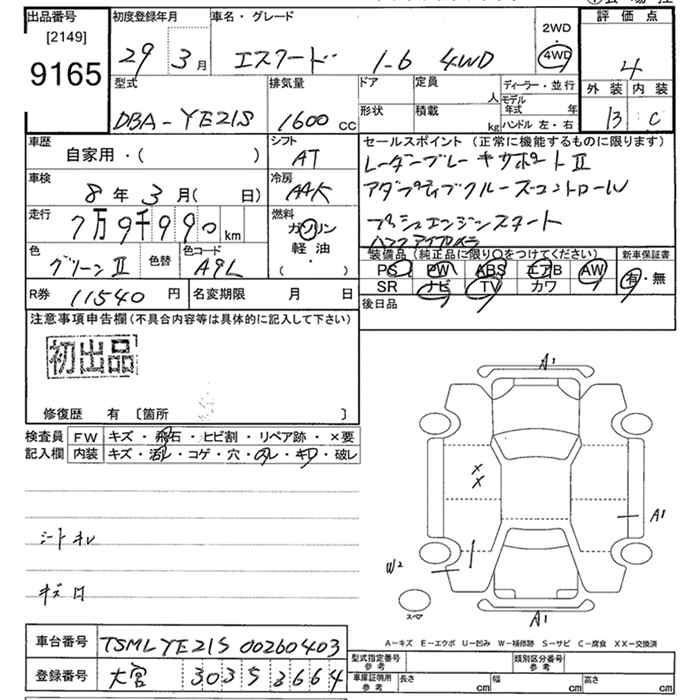 出品番号 初度登録年月 車名・グレード 評価点
[2149]
9165
29年 3月 エスクード 1-6 4WD 2WD 4WD 4
型式 排気量 ドア 定員 人 ディーラー・並行 外装 内装
DBA-YE21S 1600cc 形状 積載 kg モデル年式 年 ハンドル 左・右 B C
車歴 シフト セールスポイント (正常に機能するものに限ります)
自家用・( ) AT レーダーブレーキサポートⅡ
車検 冷房 アダプティブクルーズコントロール
8年 3月( 日) AAC
走行 7万9千990km 燃料 ガソリン 軽油・( ・ ) プッシュエンジンスタート
色 グリーンⅡ 色替 色コード A9L
装備品 (純正品に限り○をつけてください) 新車保証書
PS PW ABS エアB AW 有・無
SR ナビ TV カワ
R券 11540円 名変期限 月 日 後日品
注意事項申告欄 (不具合内容等は具体的に記入して下さい)
初出品
修復歴 有 〔箇所 〕
検査員 FW キズ・飛石・ヒビ割・リペア跡・×要
記入欄 内装 キズ・汚れ・コゲ・穴・スレ・キレ・破レ
A1
X
X
A1
シートスレ
W2
キズ
スペア
A1
A-キズ E-エクボ U-凹み W-補修跡 S-サビ C-腐食 XX-交換済
車台番号 TSMLYE21S 00260403
登録番号 大宮 303 ち 3664
型式指定番号 参考 類別区分番号 参考
車庫証明用 参考 長さ cm 幅 cm 高さ cm